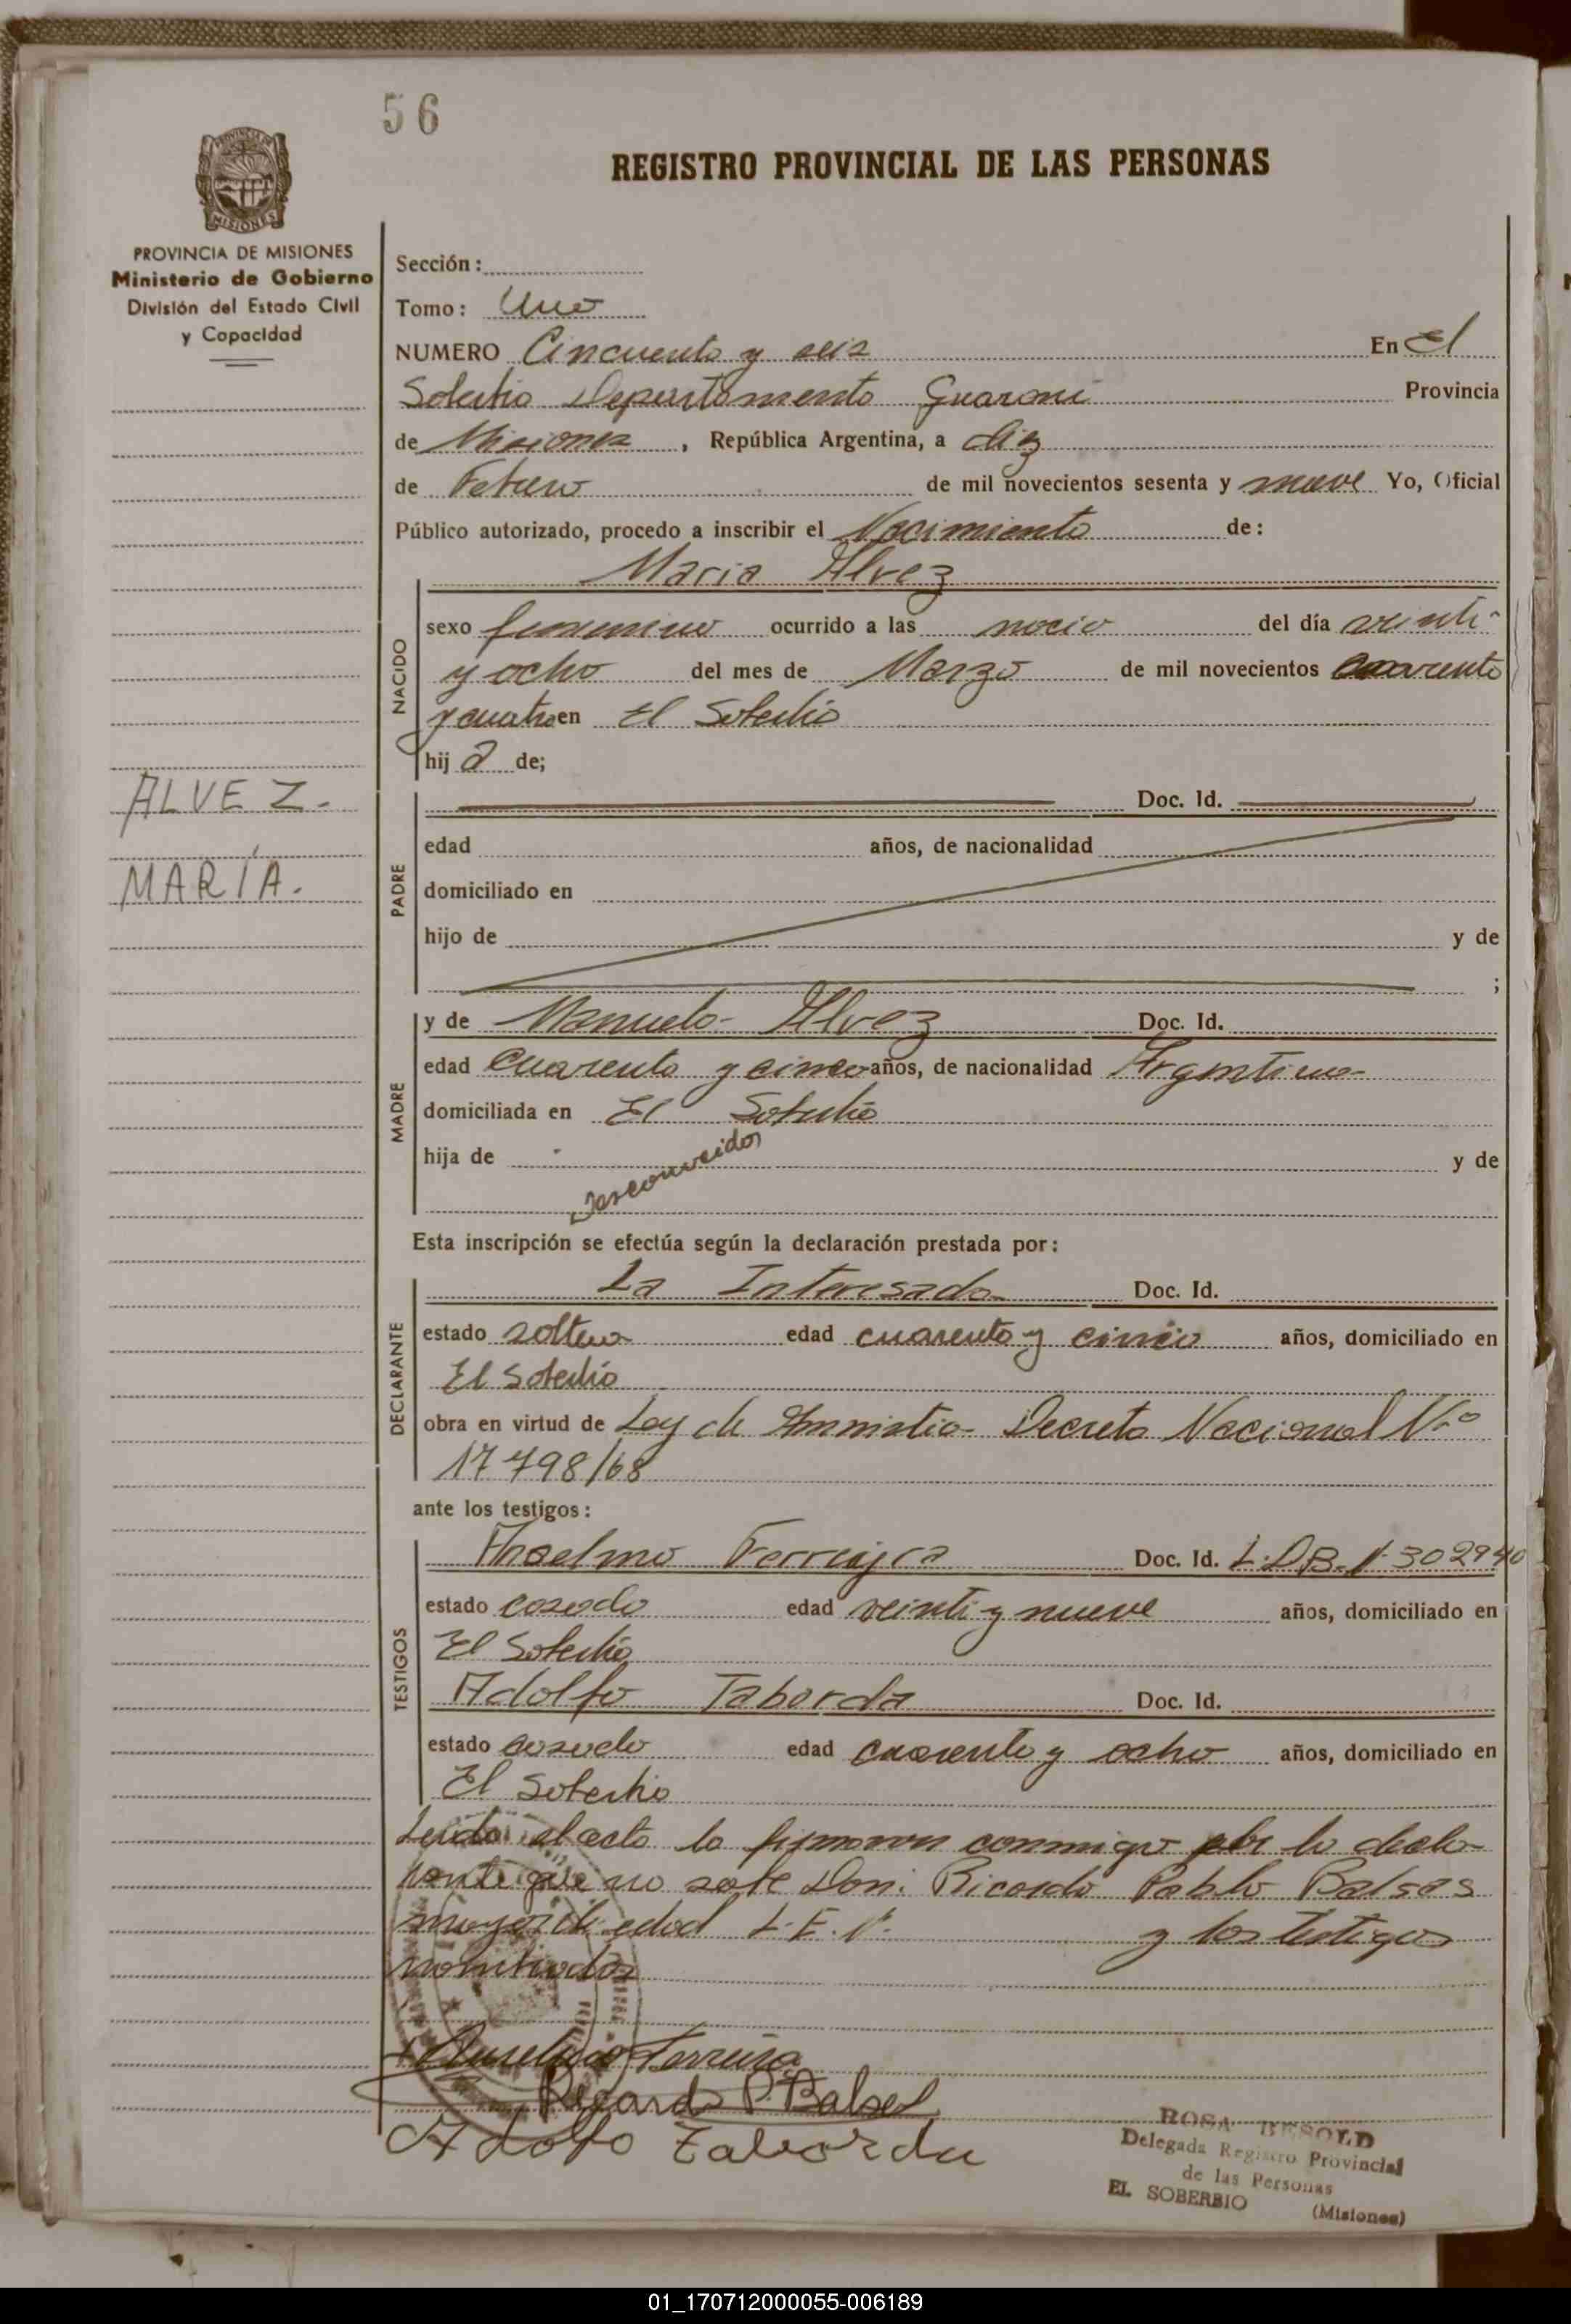 56
REGISTRO PROVINCIAL DE LAS PERSONAS
PROVINCIA DE MISIONES
MISIONES
PROVINCIA DE MISIONES
Ministerio de Gobierno
División del Estado Civil
y Capacidad
ALVEZ.
MARÍA.
Sección:
Tomo: Uno
NUMERO Cincuenta y seis En El
Soberbio Departamento Guarani Provincia
de Misiones, República Argentina, a diez
de Febrero de mil novecientos sesenta y nueve Yo, Oficial
Público autorizado, procedo a inscribir el Nacimiento de:
Maria Alvez
NACIDO
sexo femenino ocurrido a las del día veinti-
y ocho del mes de Marzo de mil novecientos cuarenta
y cuatro en El Soberbio
hij a de;
PADRE
Doc. Id.
edad años, de nacionalidad
domiciliado en
hijo de y de
;
MADRE
y de Manuela Alvez Doc. Id.
edad cuarenta y cinco años, de nacionalidad Argentina
domiciliada en El Soberbio
hija de Desconocidos y de
Esta inscripción se efectúa según la declaración prestada por:
DECLARANTE
La Interesada Doc. Id.
estado soltera edad cuarenta y cinco años, domiciliado en
El Soberbio
obra en virtud de Ley de Amnistia Decreto Nacional Nro
17798/68
ante los testigos:
TESTIGOS
Anselmo Ferreyra Doc. Id. 302940
estado casado edad veinti y nueve años, domiciliado en
El Soberbio
Adolfo Taborda Doc. Id.
estado casado edad cuarenta y ocho años, domiciliado en
El Soberbio
Leida el acta la firmaron conmigo por la decla-
rante que no sabe Don: Ricardo Pablo Balses
mayor de edad L.E. Nº y los testigos
nombrados
Ferreira
Ricardo P. Balsel
Adolfo Taborda
ROSA BESOLD
Delegada Registro Provincial
de las Personas
EL SOBERBIO (Misiones)
01_170712000055-006189